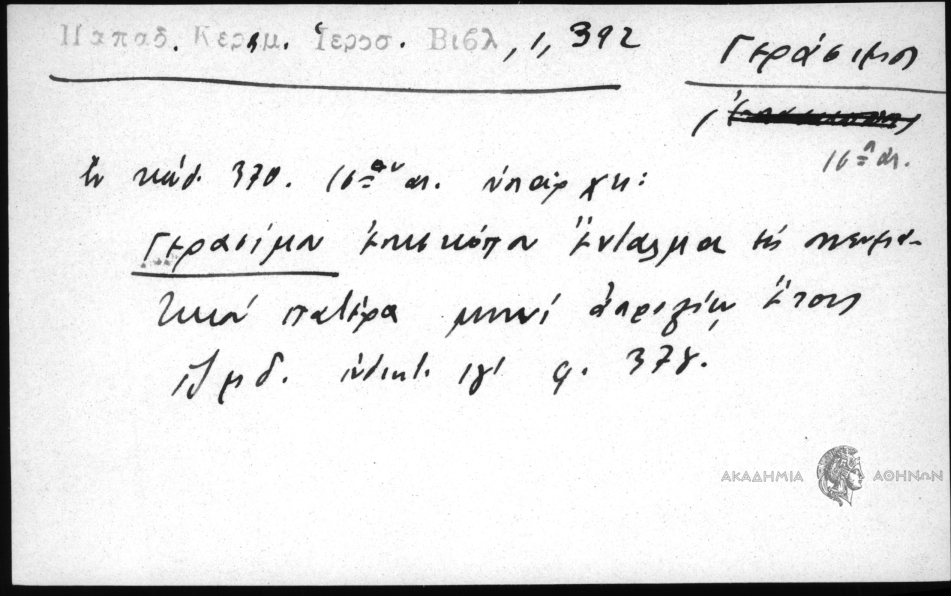 Παπαδ. Κεραμ. Ἱεροσ. Βιβλ, 1, 392
Γεράσιμος
16ου αι.
Ἐν κώδ. 370. 16ου αι. ὑπάρχει:
Γερασίμου ἐπισκόπου Ἔνταλμα εἰς πνευμα-
τικόν πατέρα μηνί ἀπριλίῳ ἔτους
͵ζμδ. ἰνδικτ. φ. 37γ.
ΑΚΑΔΗΜΙΑ ΑΘΗΝΩΝ